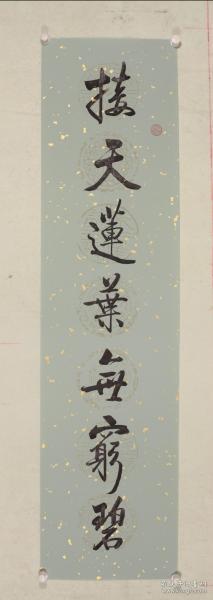 接天蓮葉無窮碧